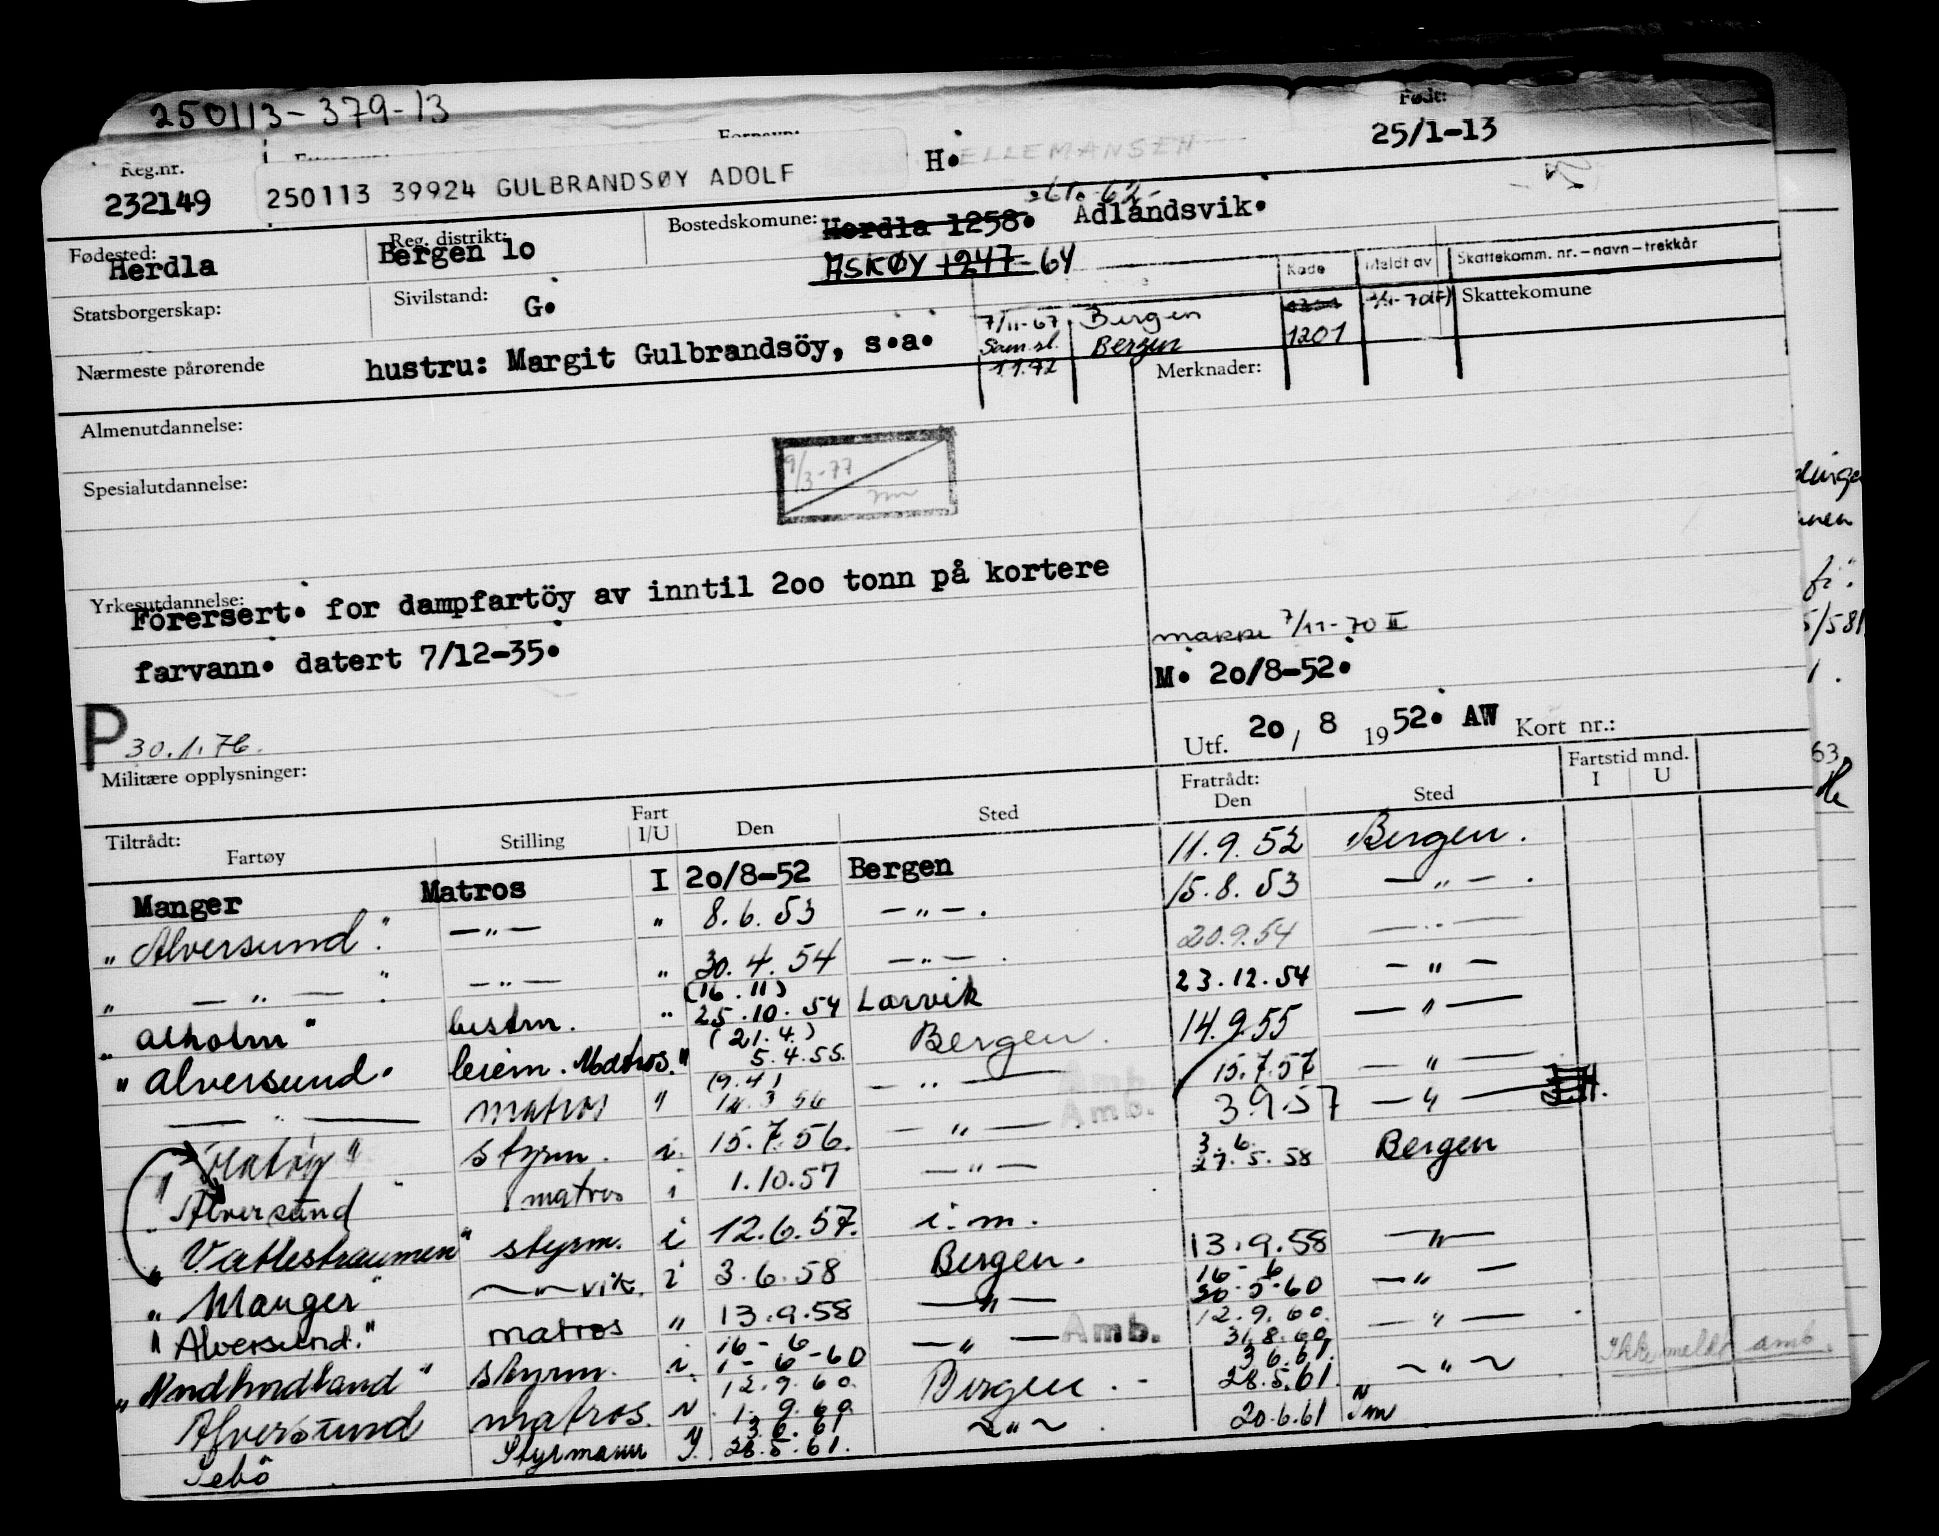 250113-379-13
Født:
25/1-13
Reg.nr.
232149
250113 39924 GULBRANDSØY ADOLF
H.
ELLEMANSEN
Fødested:
Herdla
Reg. distrikt:
Bergen lo
Bostedskomune:
Herdla 1258.
Ådlandsvik.
ASKØY 1247-64
Statsborgerskap:
Sivilstand:
G.
Kode
Meldt av
Skattekomm. nr. – navn – trekkår
Skattekomune
7/11-67 Bergen
Sam.sl. Bergen 1201
1.1.72
Nærmeste pårørende
hustru: Margit Gulbrandsöy, s.a.
Merknader:
Almenutdannelse:
Spesialutdannelse:
9/3-77
Yrkesutdannelse:
Förersert. for dampfartöy av inntil 2oo tonn på kortere
farvann. datert 7/12-35.
7/11-70 II
M. 2o/8-52.
P 30.1.76.
Utf. 2o / 8 1952. AW Kort nr.:
Militære opplysninger:
Tiltrådt:
Fartøy
Stilling
Fart
I/U
Den
Sted
Fratrådt:
Den
Sted
Fartstid mnd.
I
U
Manger Matros I 2o/8-52 Bergen 11.9.52 Bergen.
"Alversund". —"— " 8.6.53 —"—. 15.8.53 —"—.
" —"— ". —"— " 30.4.54 —"—. 20.9.54 —"—
(16.11)
"Alholm" bestm. " 25.10.54 Larvik 23.12.54 —"—
(21.4.)
"Alversund" Matros. " 5.4.55. Bergen. 14.9.55 —"—
(9.4)
—"— matros " 14.3.56 —"— Amb. 15.7.57 —"—
Amb.
styrm. i. 15.7.56. —"— 3.9.57 —"—
3.6.
Alversund matros i 1.10.57 —"— 27.5.58 Bergen
"Vatlestraumen" styrm. i 12.6.57. i.m.
"Manger" —"— vik. i 3.6.58 Bergen. 13.9.58 —"—
16-6
"Alversund." matros " 13.9.58 —"— 30-5-60 —"—
16-6
12.9.60.
"Nordhordland" styrm. i. 1-6-60 —"— Amb. 31.8.60 —"—.
12.9.60.
3.6.61.
Alversund matros. " 1.9.60 Bergen. 28.5.61. ~"~ Ikke meldt amb.
3.6.61
Sebö Styrmann I. 28.5.61. ~"~. 20.6.61
5/58
63